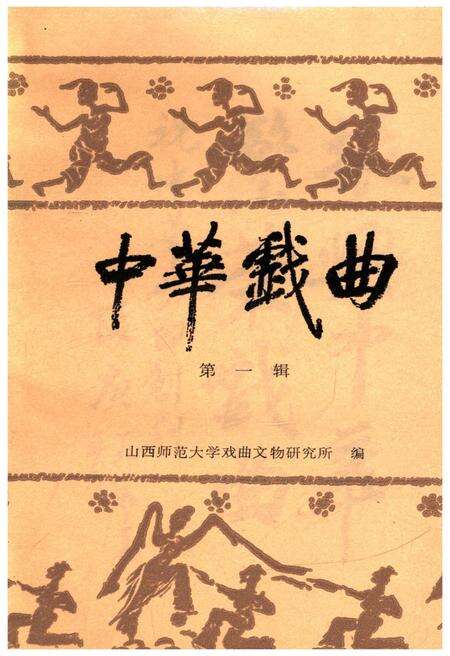 中華戲曲
第一辑
山西师范大学戏曲文物研究所 编